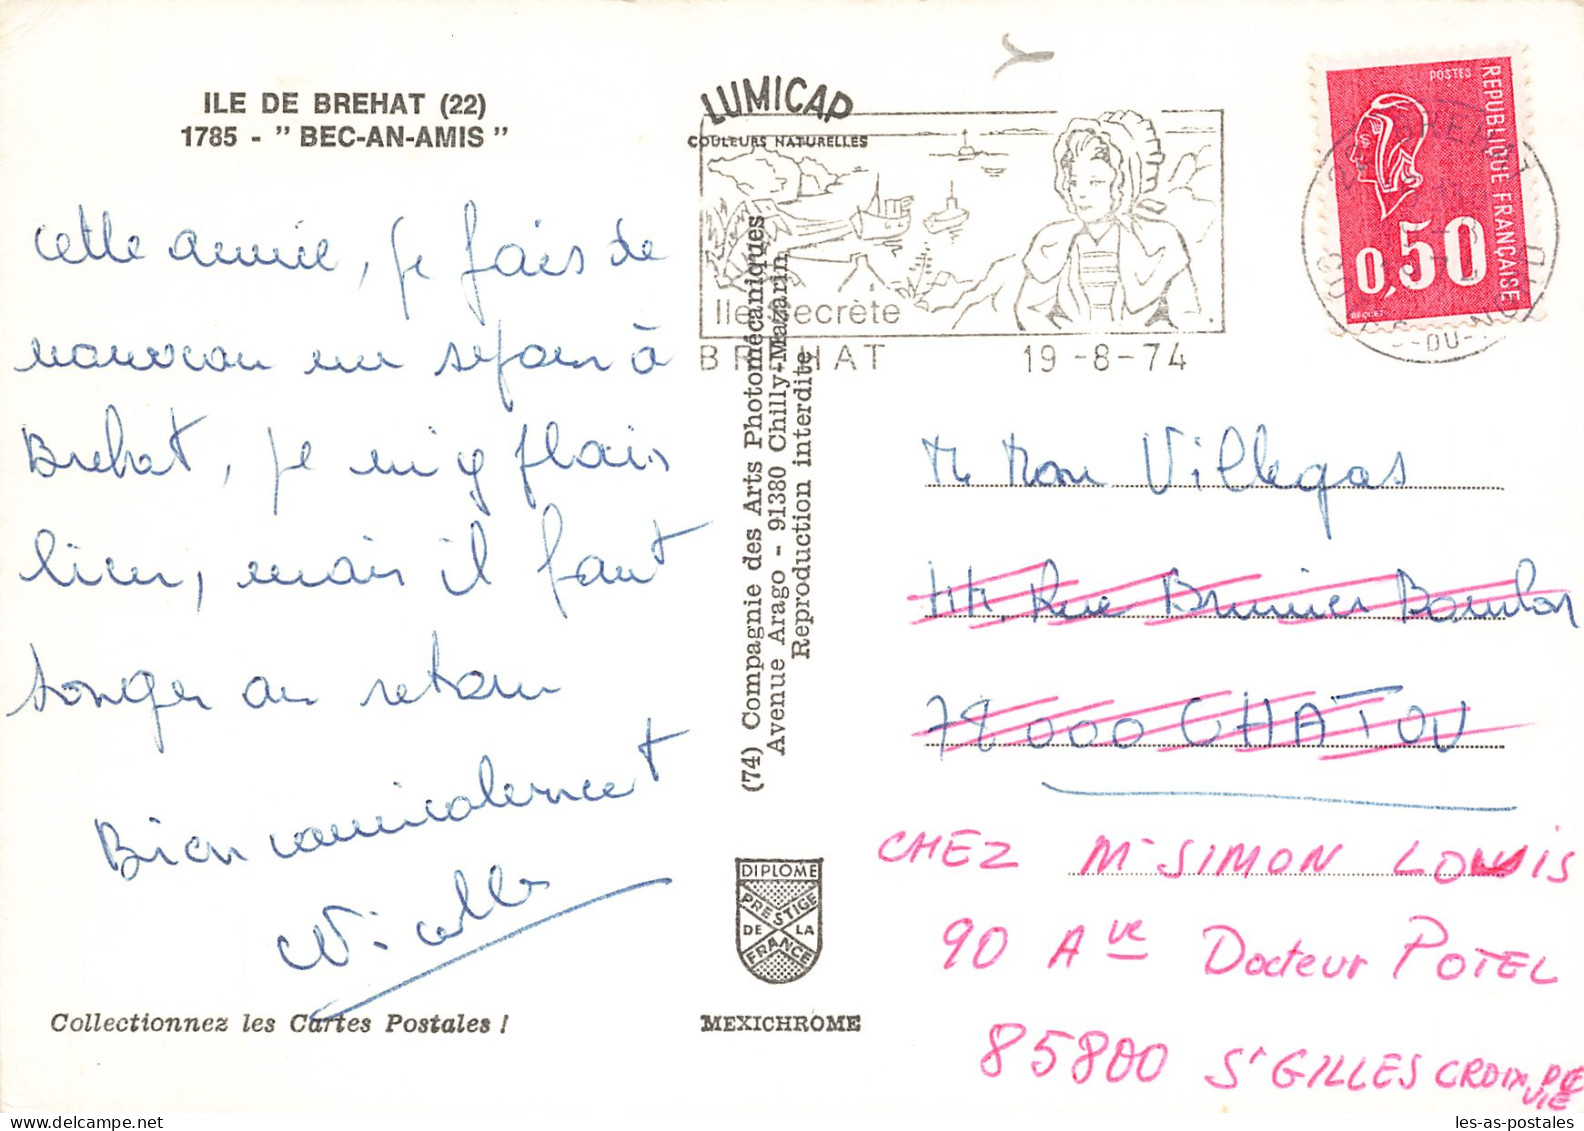 ILE DE BREHAT (22)
1785 - " BEC-AN-AMIS "
cette année, je fais de
nouveau un séjour à
Brehat, je m'y plais
bien, mais il faut
songer au retour
Bien amicalement
Collectionnez les Cartes Postales !
LUMICAP
COULEURS NATURELLES
Ile Secrète
BREHAT 19-8-74
(74) Compagnie des Arts Photomécaniques
Avenue Arago - 91380 Chilly-Mazarin
Reproduction interdite
DIPLOME
PRESTIGE
DE LA
FRANCE
MEXICHROME
POSTES
REPUBLIQUE FRANÇAISE
0,50
BEQUET
-DU-
Villegas
Rue
78000 CHATOU
CHEZ Mr SIMON LOUIS
90 Ave Docteur POTEL
85800 St GILLES CROIX DE
VIE
les-as-postales